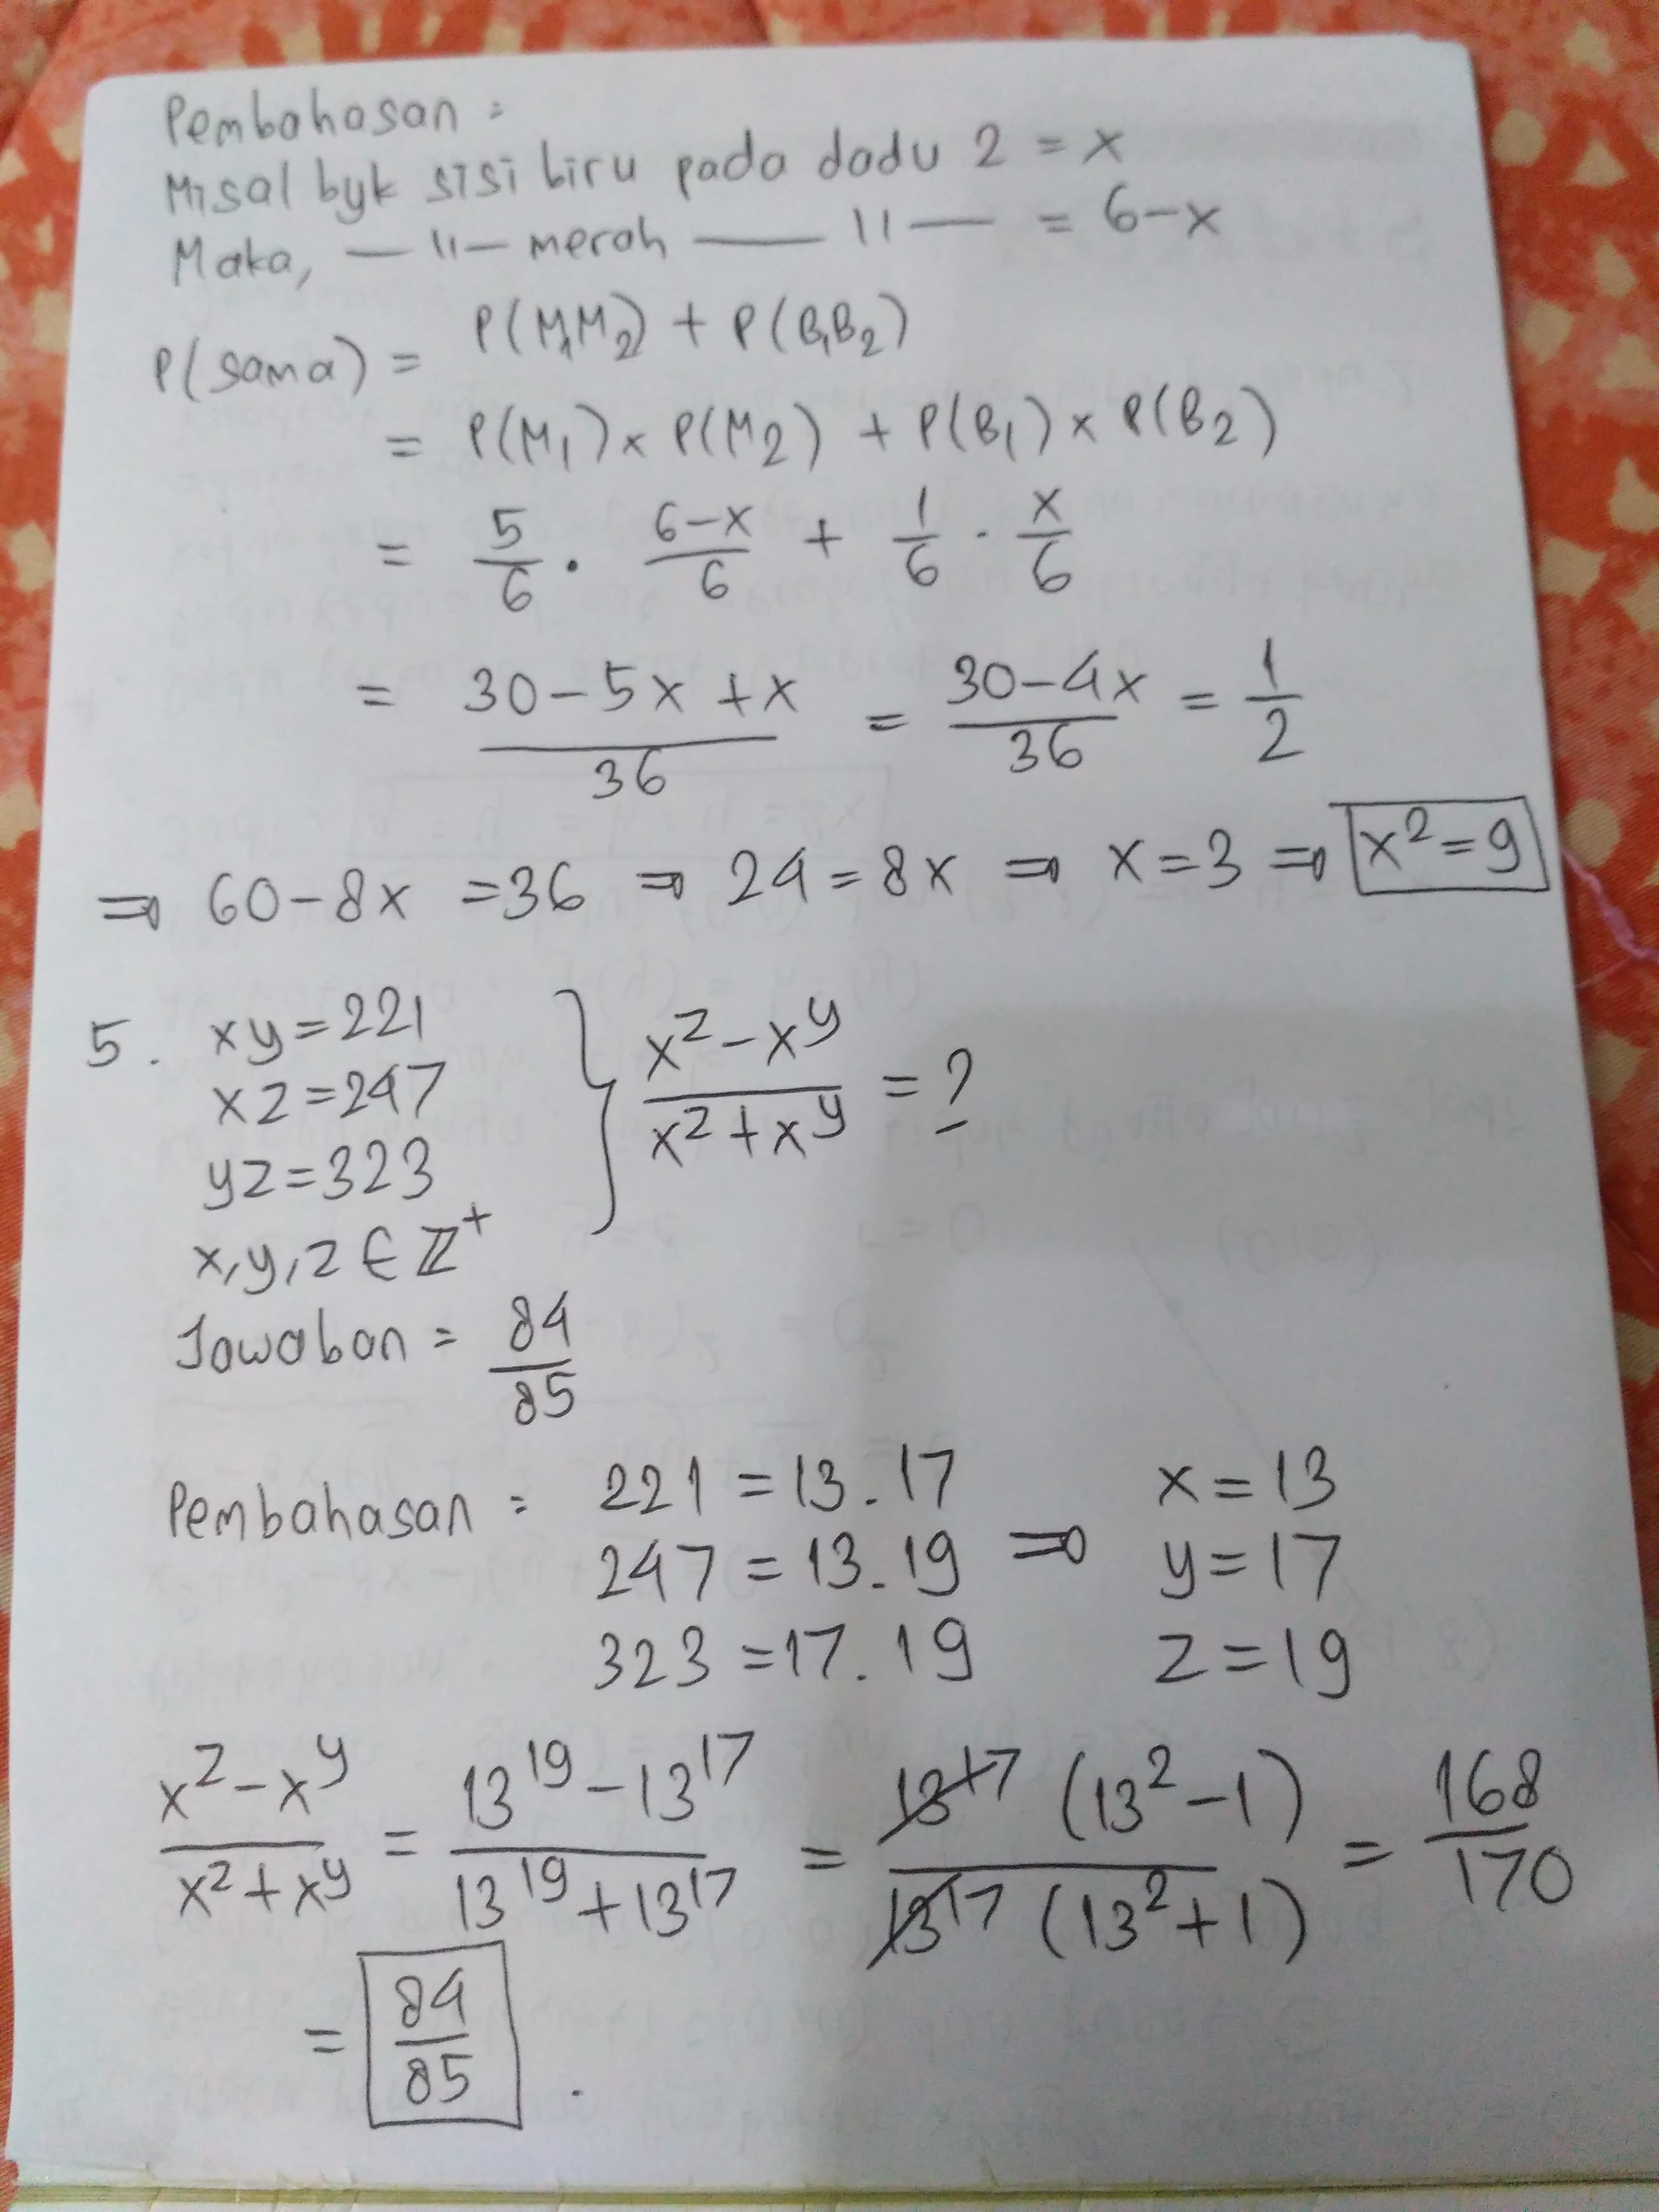 Pembahasan =
Misal byk sisi biru pada dadu 2 = x
Maka, — 11 — merah — 11 — = 6-x
P(sama) = P(M₁M₂) + P(B₁B₂)
= P(M₁) x P(M₂) + P(B₁) x P(B₂)
= 5/6 . (6-x)/6 + 1/6 . x/6
= (30-5x+x)/36 = (30-4x)/36 = 1/2
⇒ 60-8x = 36 ⇒ 24 = 8x ⇒ x = 3 ⇒ x² = 9
5. xy = 221
xz = 247
yz = 323
x,y,z ∈ ℤ⁺
} (x^z - x^y)/(x^z + x^y) = ?
Jawaban = 84/85
Pembahasan = 221 = 13.17
247 = 13.19 ⇒
323 = 17.19
x = 13
y = 17
z = 19
(x^z - x^y)/(x^z + x^y) = (13^19 - 13^17)/(13^19 + 13^17) = 13^17 (13² - 1)/13^17 (13² + 1) = 168/170
= 84/85 .